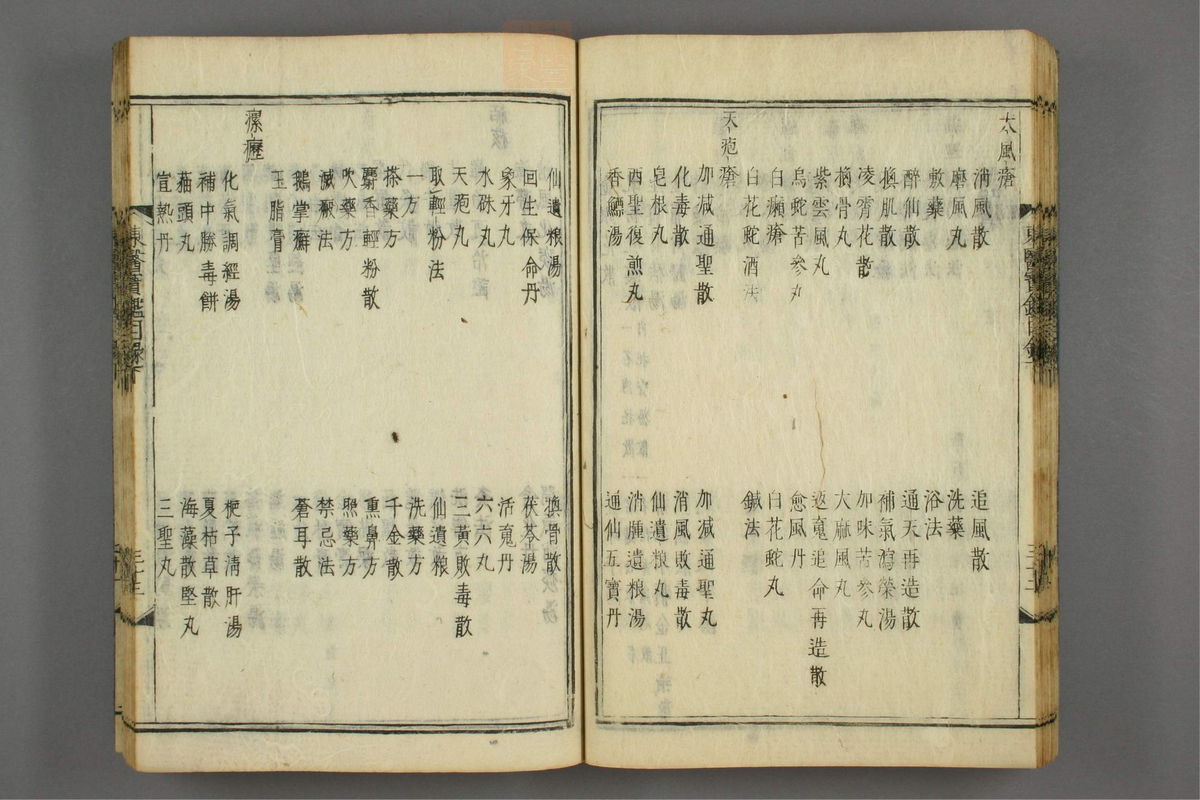 大風瘡
消風散 追風散
磨風丸 洗藥
敷藥 浴法
醉仙散 通天再造散
換肌散 補氣瀉榮湯
凌霄花散 加味苦參丸
換骨丸 大麻風丸
紫雲風丸 返魂追命再造散
烏蛇苦參丸 愈風丹
白癩瘡 白花蛇丸
白花蛇酒法 鍼法
天疱瘡
加減通聖散 加減通聖丸
化毒散 消風敗毒散
皂根丸 仙遺粮丸
西聖復煎丸 消腫遺粮湯
香鱉湯 通仙五寶丹
仙遺粮湯 換骨散
回生保命丹 茯苓湯
象牙丸 活魂丹
水硃丸 六六丸
天疱丸 三黃敗毒散
取輕粉法 仙遺粮
一方 洗藥方
搽藥方 千金散
麝香輕粉散 熏鼻方
吹藥方 照藥方
滅瘢法 禁忌法
鵝掌癬 蒼耳散
玉脂膏
瘰癧
化氣調經湯 梔子淸肝湯
補中勝毒餠 夏枯草散
猫頭丸 海藻散堅丸
宣熱丹 三聖丸
東醫寶鑑目錄下